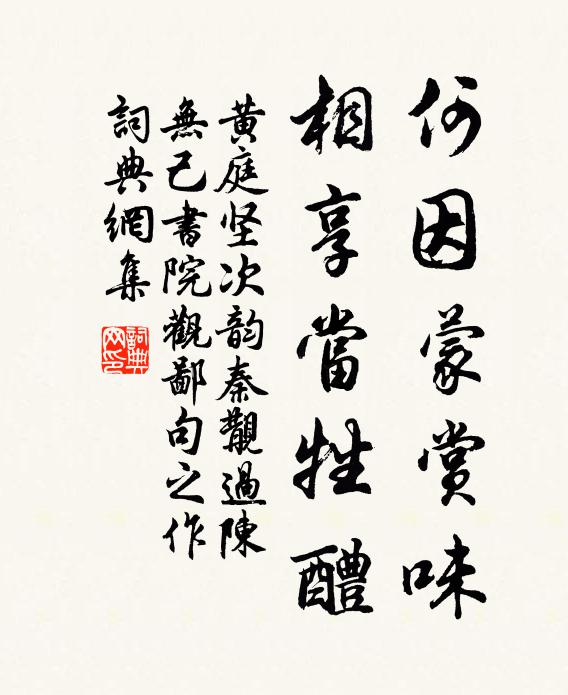 何因蒙賞味
相享當牲醴
黄庭坚次韵秦觀過陳
無己書院觀鄙句之作
詞典網集
詞典
网印